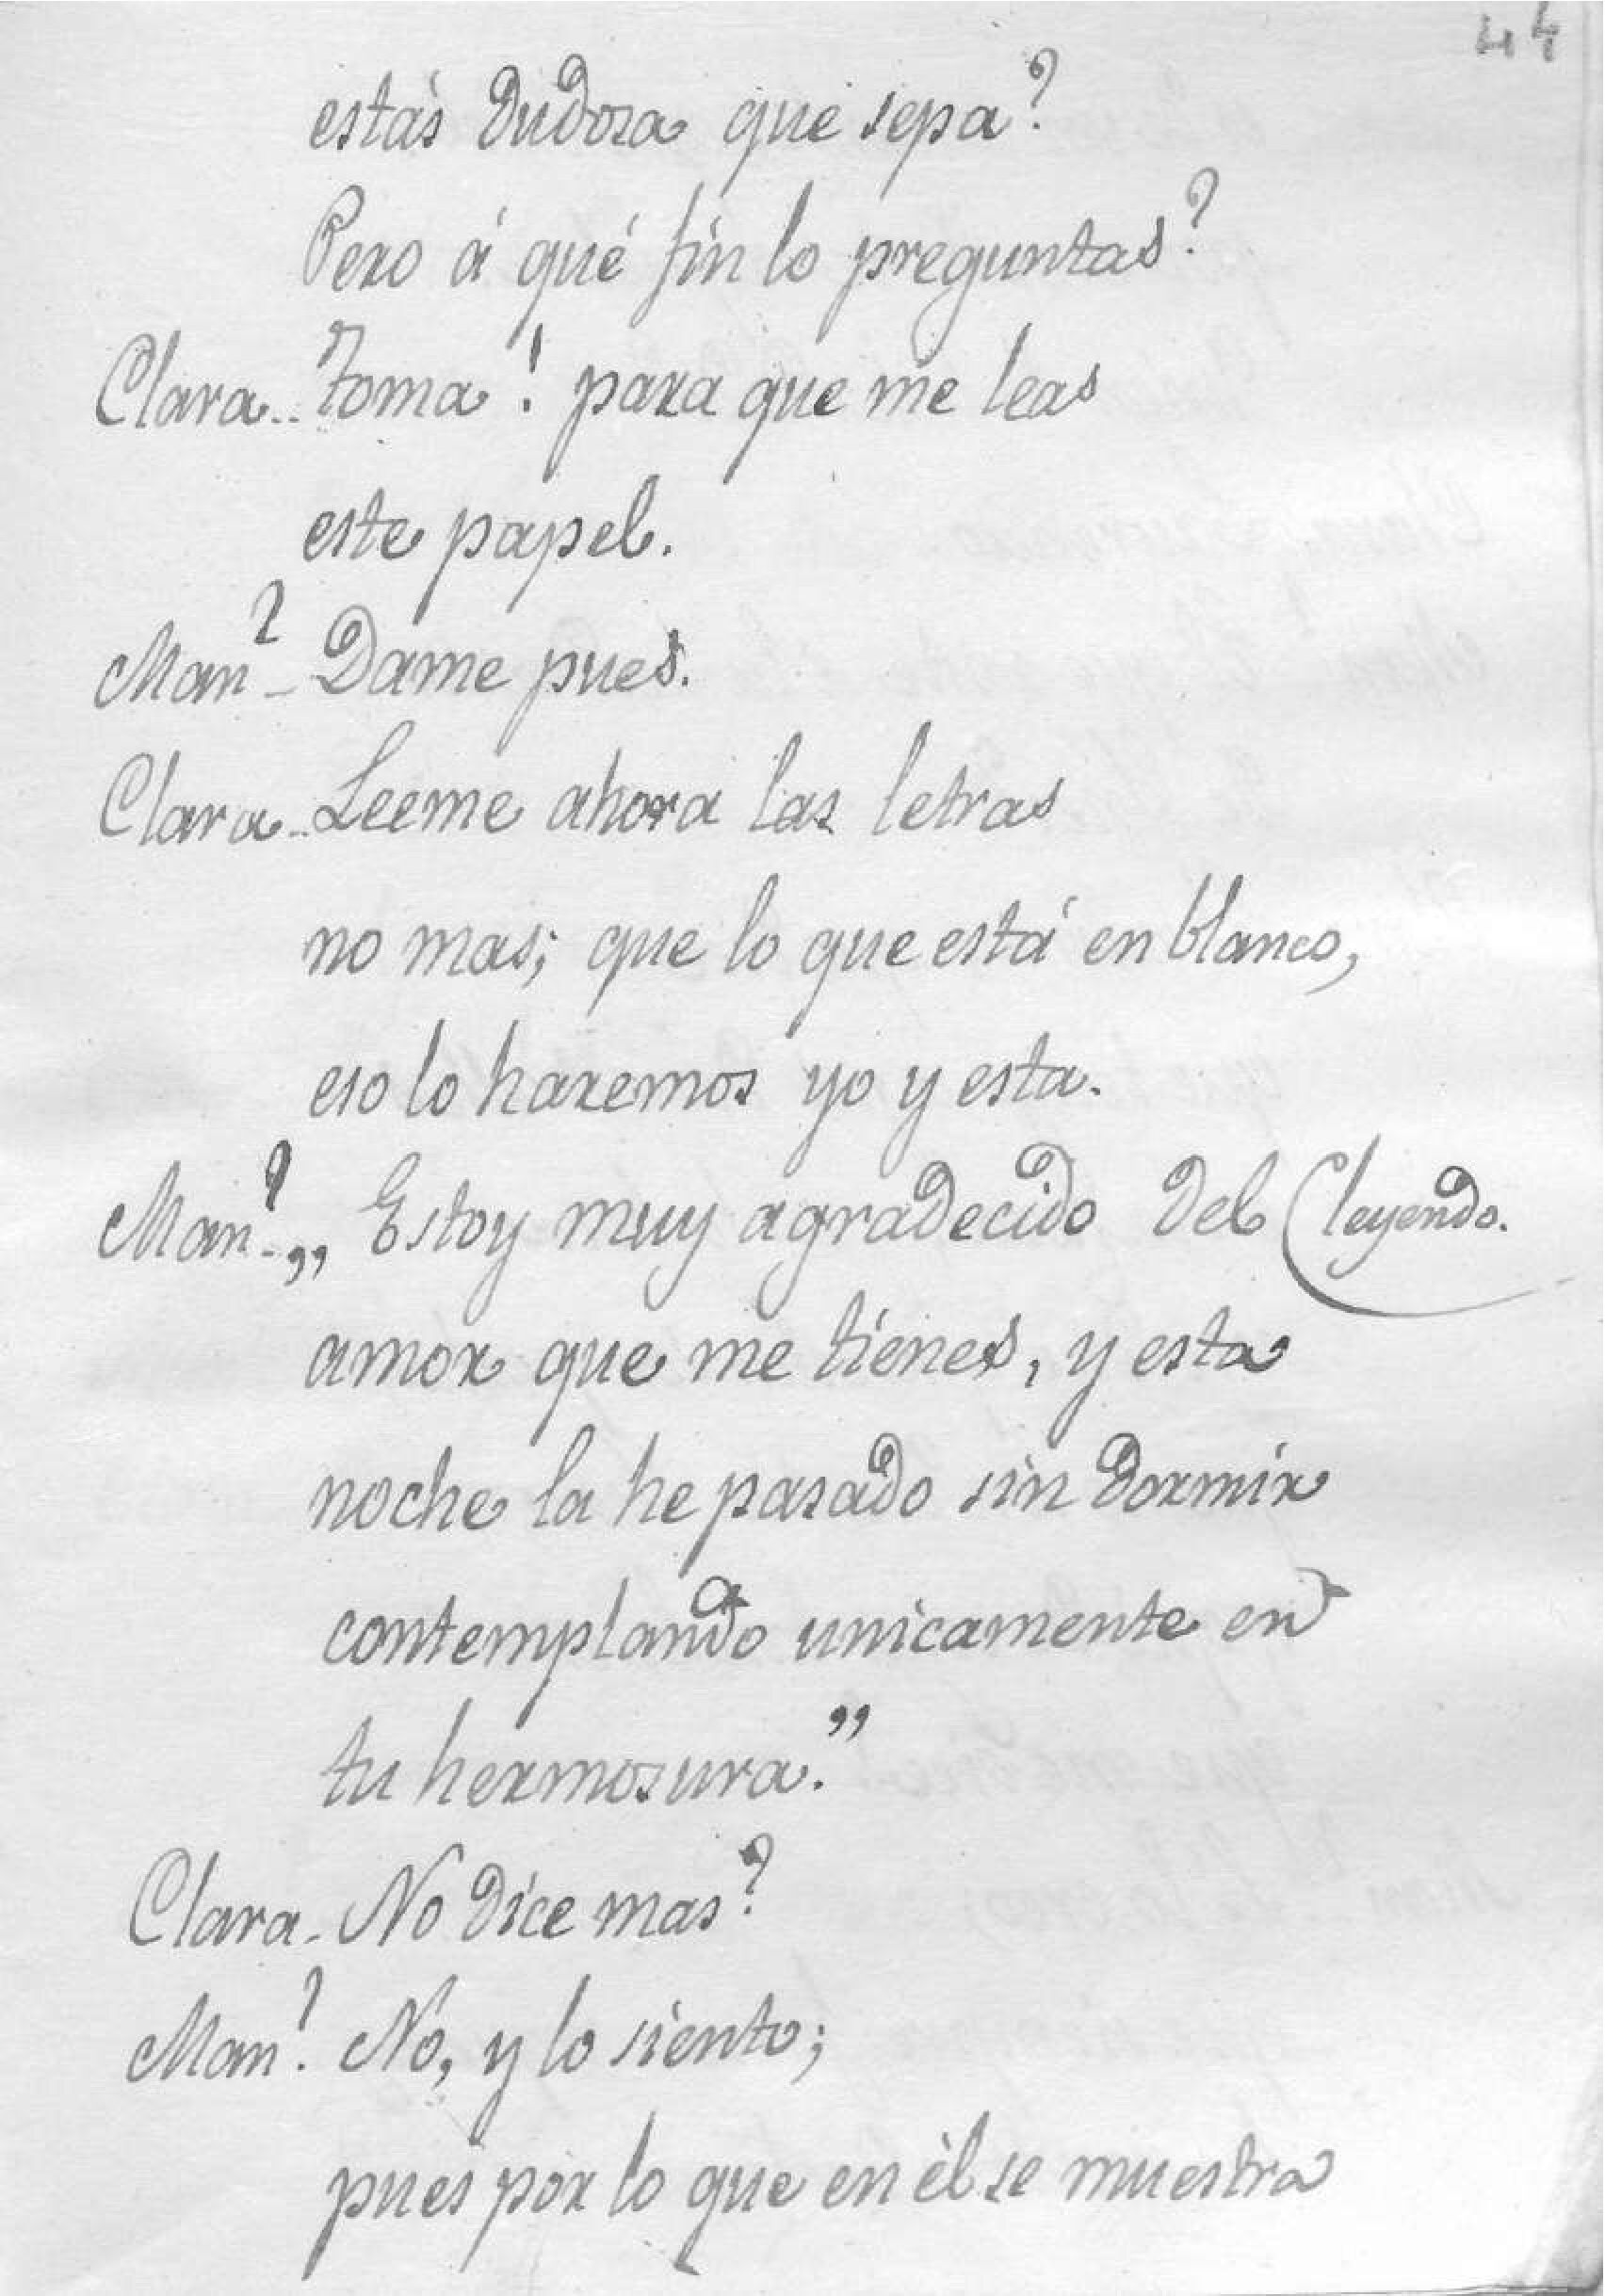 44
estás dudosa que sepa?
Pero á qué fin lo preguntas?
Clara.. Toma! para que me leas
este papel.
Man.l - Dame pues.
Clara.. Leeme ahora las letras
no mas; que lo que está en blanco,
eso lo haremos yo y esta.
Man.l „ Estoy muy agradecido del (leyendo.
amor que me tienes, y esta
noche la he pasado sin dormir
contemplando unicamente en
tu hermosura.”
Clara - No dice mas?
Man.l No, y lo siento;
pues por lo que en él se muestra